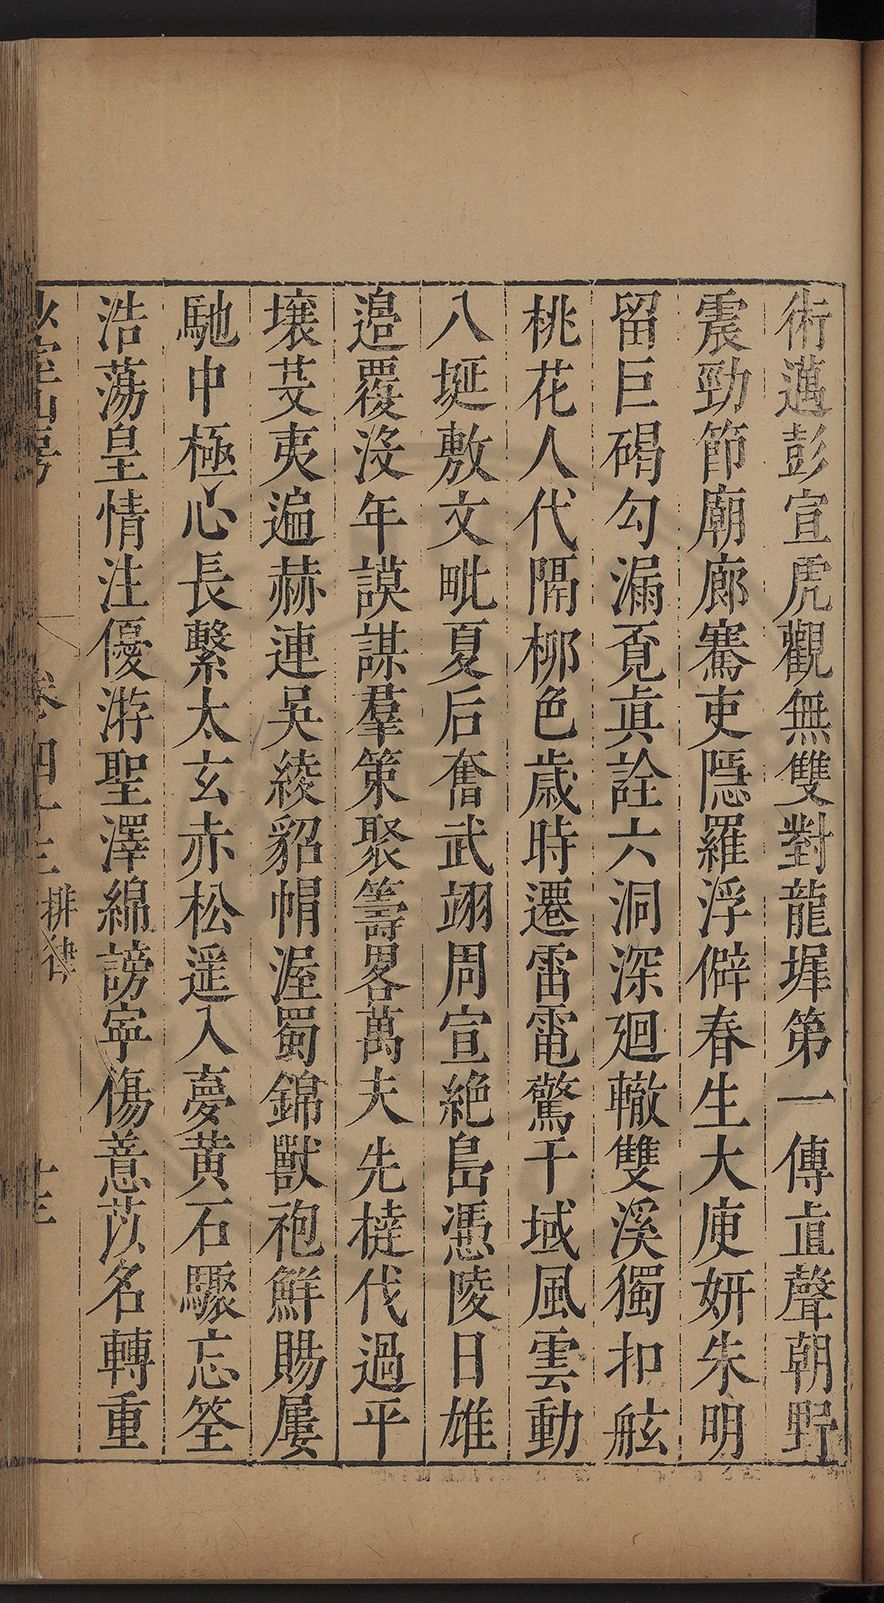 術邁彭宣虎觀無雙對龍墀第一傳直聲朝野
震勁節廟廊騫吏隱羅浮僻春生大庾妍朱明
留巨碣勾漏覔眞詮六洞深廻轍雙溪獨扣舷
桃花人代隔柳色歲時遷雷電驚干域風雲動
八埏敷文毗夏后奮武翊周宣絶島憑陵日雄
邉覆沒年謨謀羣策聚籌畧萬夫先撻伐過平
壤芟夷遍赫連吳綾貂帽渥蜀錦獸袍鮮賜屢
馳中極心長繫太玄赤松遥入夢黄石驟忘筌
浩蕩皇情注優游聖澤綿謗寧傷薏苡名轉重
少室山房
卷四十三 排律 十三